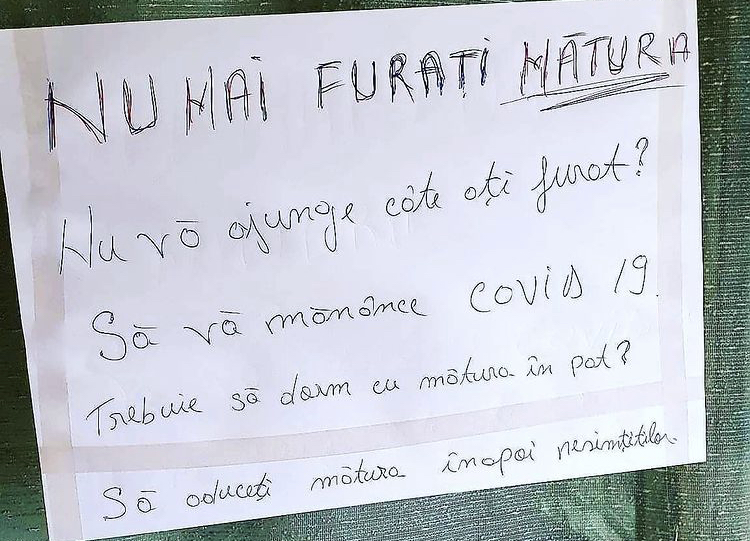 NU MAI FURAȚI MĂTURA
Nu vă ajunge câte ați furat?
Să vă mănânce COVID 19.
Trebuie să dorm cu mătura în pat?
Să aduceți mătura înapoi nesimțiților